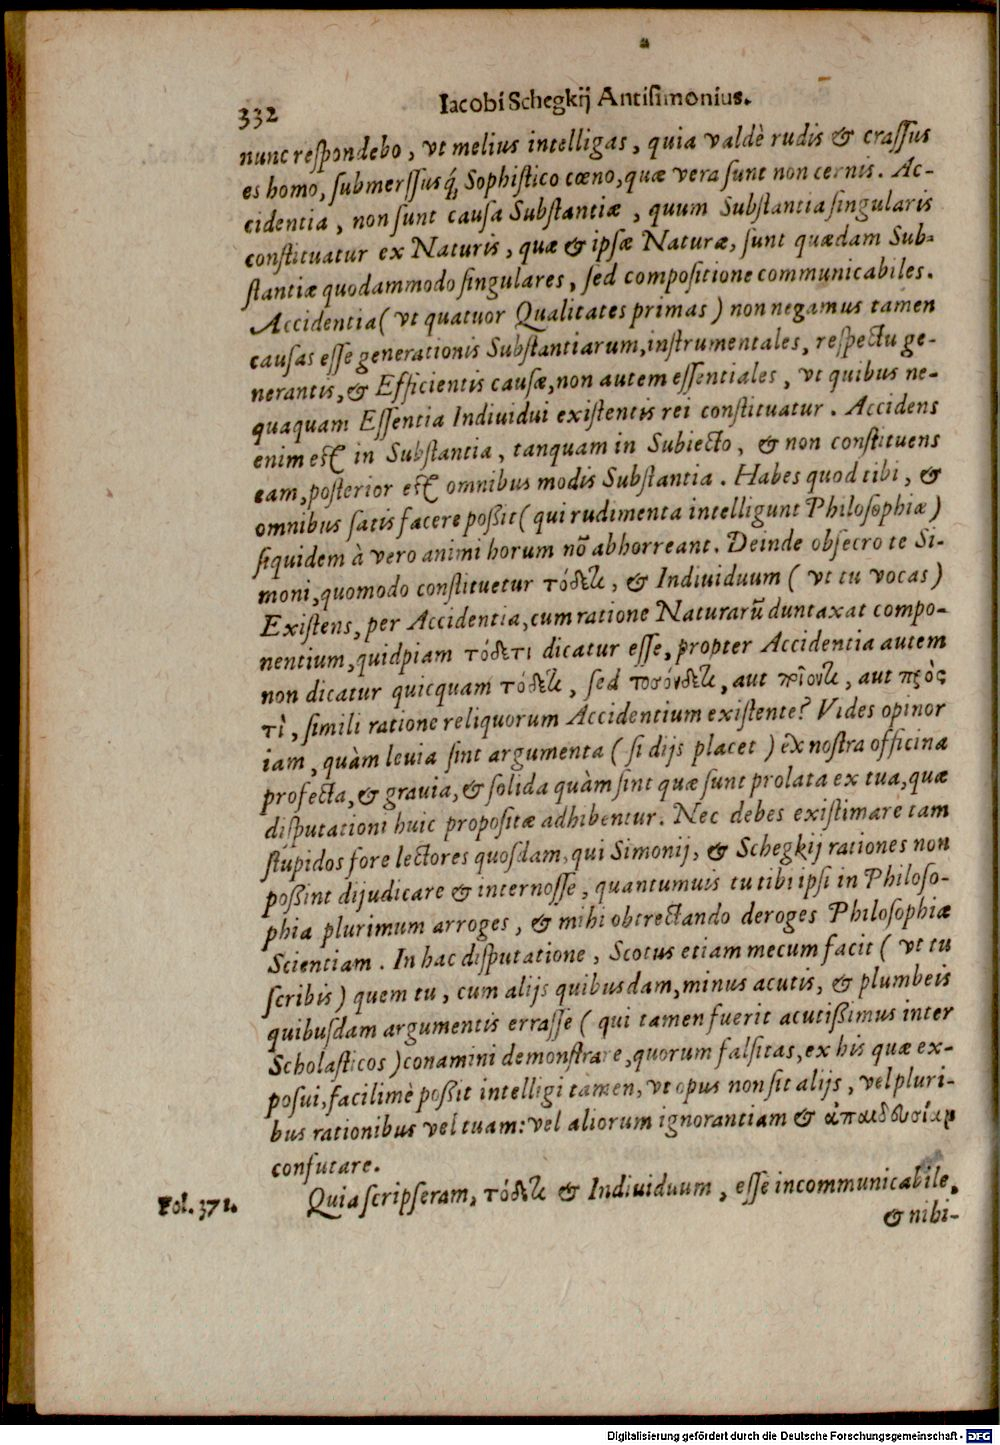 332
Iacobi Schegkij Antisimonius.
nunc respondebo, vt melius intelligas, quia valdè rudis & crassus
es homo, submerssusq́; Sophistico cœno, quæ vera sunt non cernis. Ac-
cidentia, non sunt causa Substantiæ, quum Substantia singularis
constituatur ex Naturis, quæ & ipsæ Naturæ, sunt quædam Sub-
stantiæ quodammodo singulares, sed compositione communicabiles.
Accidentia (vt quatuor Qualitates primas) non negamus tamen
causas esse generationis Substantiarum, instrumentales, respectu ge-
nerantis, & Efficientis causæ, non autem essentiales, vt quibus ne-
quaquam Essentia Individui existentis rei constituatur. Accidens
enim est in Substantia, tanquam in Subiecto, & non constituens
eam, posterior est omnibus modis Substantia. Habes quod tibi, &
omnibus satis facere poßit (qui rudimenta intelligunt Philosophiæ)
siquidem à vero animi horum nō abhorreant. Deinde obsecro te Si-
moni, quomodo constituetur τόδετι, & Indiuiduum (vt tu vocas)
Existens, per Accidentia, cum ratione Naturarū duntaxat compo-
nentium, quidpiam τόδετι dicatur esse, propter Accidentia autem
non dicatur quicquam τόδετι, sed τοσόνδετι, aut ποῖοντι, aut πρὸς
τὶ, simili ratione reliquorum Accidentium existente? Vides opinor
iam, quàm leuia sint argumenta (si dijs placet) ex nostra officina
profecta, & gravia, & solida quàm sint quæ sunt prolata ex tua, quæ
disputationi huic propositæ adhibentur. Nec debes existimare tam
stupidos fore lectores quosdam, qui Simonij, & Schegkij rationes non
poßint dijudicare & internosse, quantumuis tu tibi ipsi in Philoso-
phia plurimum arroges, & mihi obtrectando deroges Philosophiæ
Scientiam. In hac disputatione, Scotus etiam mecum facit (vt tu
scribis) quem tu, cum alijs quibusdam, minus acutis, & plumbeis
quibusdam argumentis errasse (qui tamen fuerit acutißimus inter
Scholasticos) conamini demonstrare, quorum falsitas, ex his quæ ex-
posui, facilimè poßit intelligi tamen, vt opus non sit alijs, vel pluri-
bus rationibus vel tuam: vel aliorum ignorantiam & ἀπαιδευσίαν
confutare.
Fol. 371. Quia scripseram, τόδετι & Indiuiduum, esse incommunicabile,
& nihi-
Digitalisierung gefördert durch die Deutsche Forschungsgemeinschaft - DFG